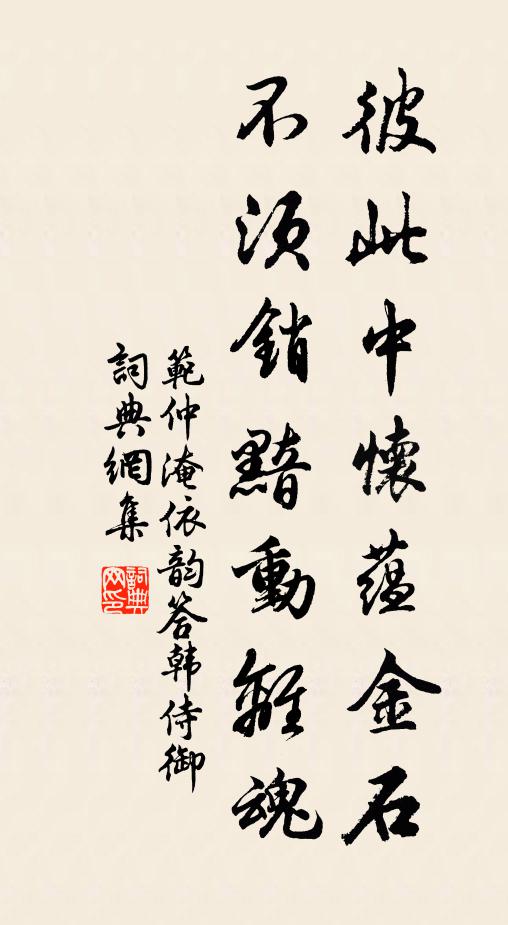 彼此中懷蘊金石
不須銷黯動離魂
範仲淹依韵答韓侍御
詞典網集
詞典
网印